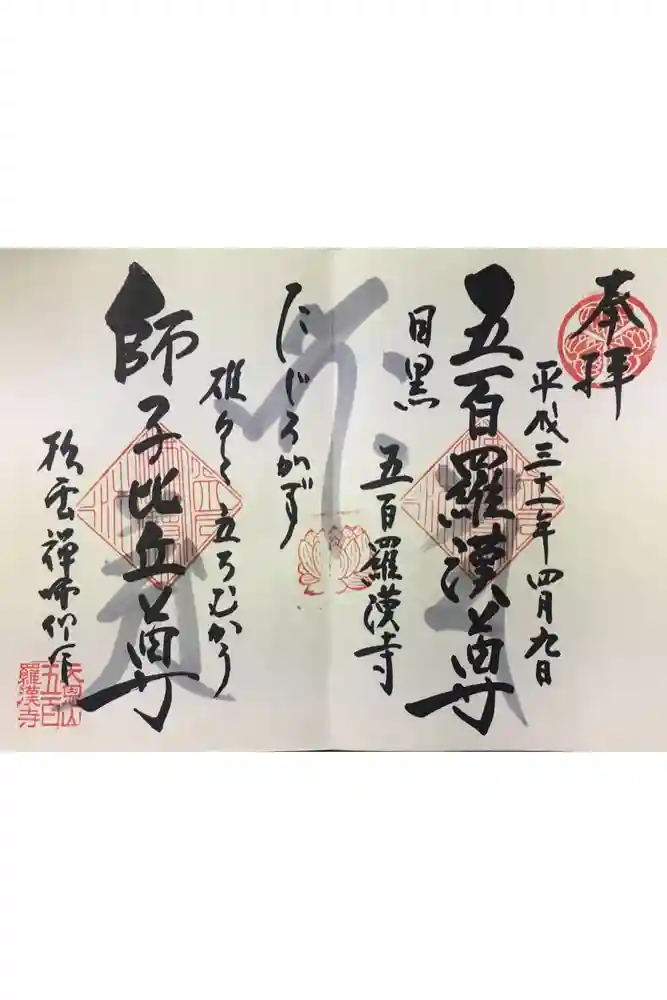 奉拝
平成三十一年四月九日
五百羅漢尊
目黒 五百羅漢寺
たじろがず
確りと立ちむかう
師子比丘尊
松雲禅師作
天恩山
五百
羅漢寺